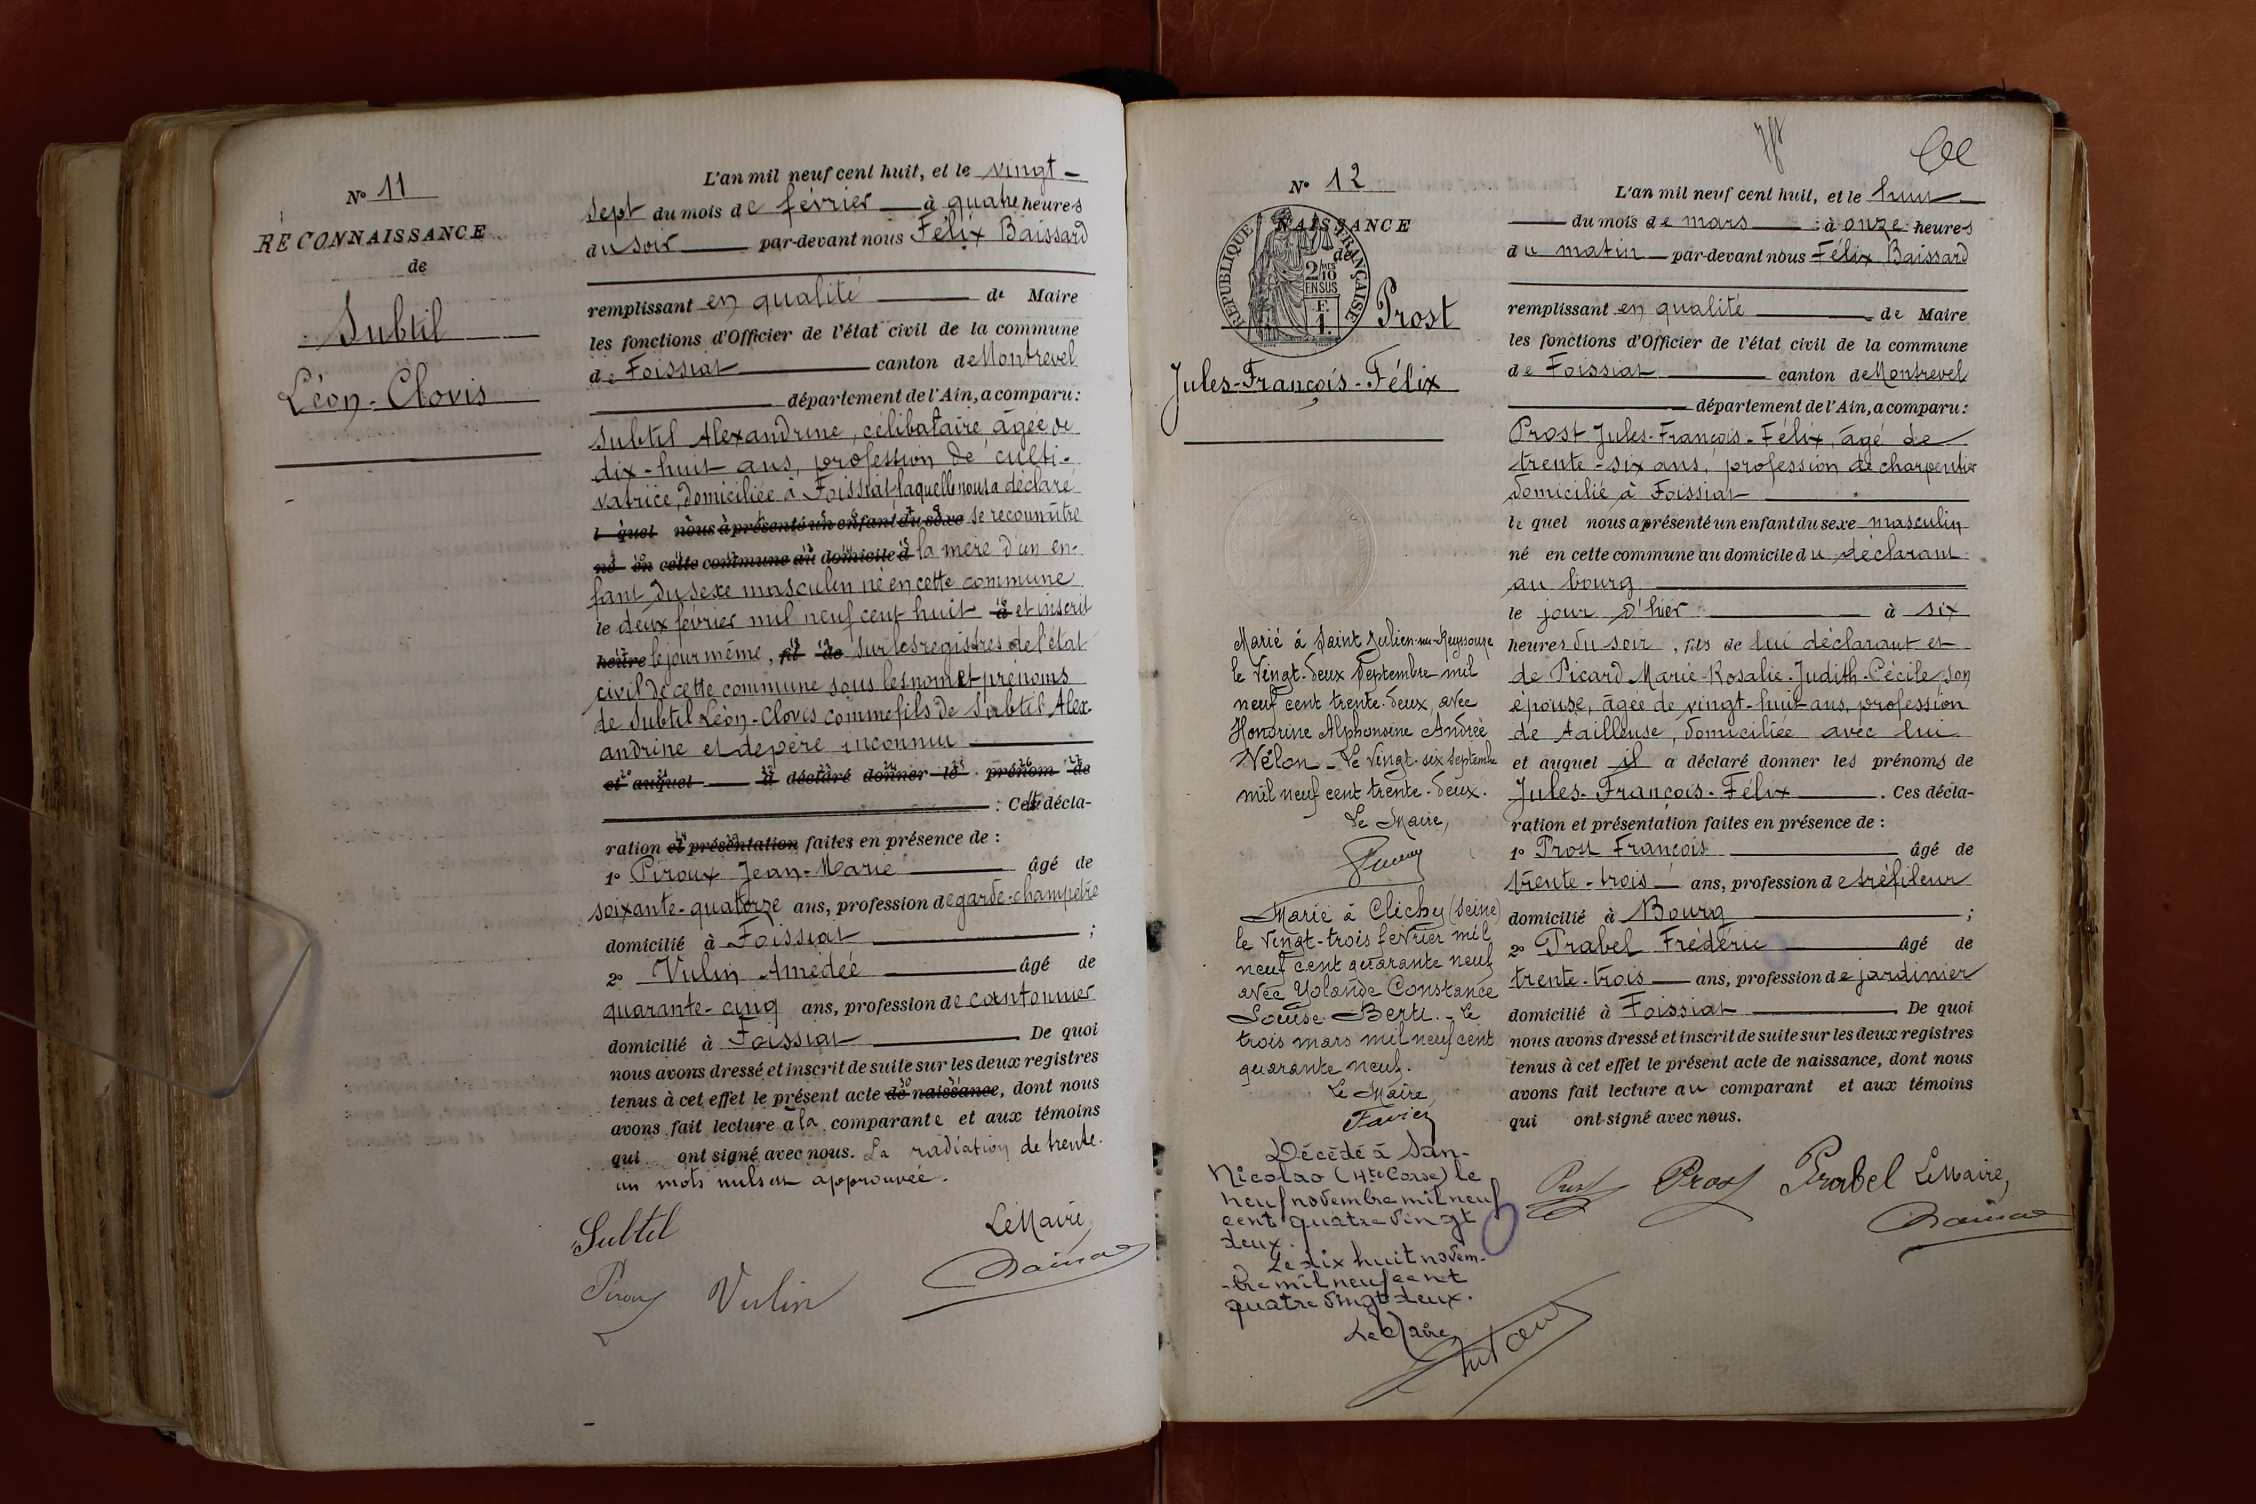 N° 11
RECONNAISSANCE
de
Subtil
Léon-Clovis
L'an mil neuf cent huit, et le vingt-
sept du mois de février à quatre heures
du soir par-devant nous Félix Baissard
remplissant en qualité de Maire
les fonctions d'Officier de l'état civil de la commune
de Foissiat canton de Montrevel
département de l'Ain, a comparu:
Subtil Alexandrine, célibataire âgée de
dix-huit ans, profession de culti-
vatrice, domiciliée à Foissiat laquelle nous a déclaré
l quel nous a présenté un enfant du sexe se reconnaître
né en cette commune au domicile d la mère d'un en-
fant du sexe masculin né en cette commune
le deux février mil neuf cent huit à et inscrit
heure le jour même, fil de sur les registres de l'état
civil de cette commune sous les nom et prénoms
de Subtil Léon-Clovis comme fils de Subtil Alex-
andrine et de père inconnu
et auquel a déclaré donner le prénom de
: Cette décla-
ration et présentation faites en présence de :
1° Piroux Jean-Marie âgé de
soixante-quatorze ans, profession de garde-champêtre
domicilié à Foissiat ;
2° Vulin Amédée âgé de
quarante-cinq ans, profession de cantonnier
domicilié à Foissiat De quoi
nous avons dressé et inscrit de suite sur les deux registres
tenus à cet effet le présent acte de naissance, dont nous
avons fait lecture à la comparante et aux témoins
qui ont signé avec nous. La radiation de trente-
un mots nuls est approuvée.
Subtil
Le Maire,
Piroux Vulin
N° 12
NAISSANCE
de
REPUBLIQUE FRANÇAISE
2/10 MES
EN SUS
F.
1.
Prost
Jules-François-Félix
Marié à Saint Julien-sur-Reyssouze
le vingt-deux Septembre mil
neuf cent trente-deux, avec
Honorine Alphonsine Andrée
Vélon - Le vingt-six septembre
mil neuf cent trente-deux.
Le Maire,
Marié à Clichy (Seine)
le vingt-trois février mil
neuf cent quarante neuf
avec Yolande Constance
Louise Berti. - Le
trois mars mil neuf cent
quarante neuf.
Le Maire,
Favier
Décédé à San-
Nicolao (Hte Corse) le
neuf novembre mil neuf
cent quatre vingt
deux.
Le dix huit novem-
-bre mil neuf cent
quatre vingt deux.
Le Maire
L'an mil neuf cent huit, et le huit
du mois de mars à onze heures
du matin par-devant nous Félix Baissard
remplissant en qualité de Maire
les fonctions d'Officier de l'état civil de la commune
de Foissiat canton de Montrevel
département de l'Ain, a comparu:
Prost Jules-François-Félix, âgé de
trente-six ans, profession de charpentier
domicilié à Foissiat
le quel nous a présenté un enfant du sexe masculin
né en cette commune au domicile du déclarant
au bourg
le jour d'hier à six
heures du soir, fils de lui déclarant et
de Picard Marie-Rosalie-Judith-Cécile, son
épouse, âgée de vingt-huit ans, profession
de tailleuse, domiciliée avec lui
et auquel il a déclaré donner les prénoms de
Jules-François-Félix . Ces décla-
ration et présentation faites en présence de :
1° Prost François âgé de
trente-trois ans, profession de tréfileur
domicilié à Bourg ;
2° Prabel Frédéric âgé de
trente-trois ans, profession de jardinier
domicilié à Foissiat De quoi
nous avons dressé et inscrit de suite sur les deux registres
tenus à cet effet le présent acte de naissance, dont nous
avons fait lecture au comparant et aux témoins
qui ont signé avec nous.
Prost Prost Prabel Le Maire,